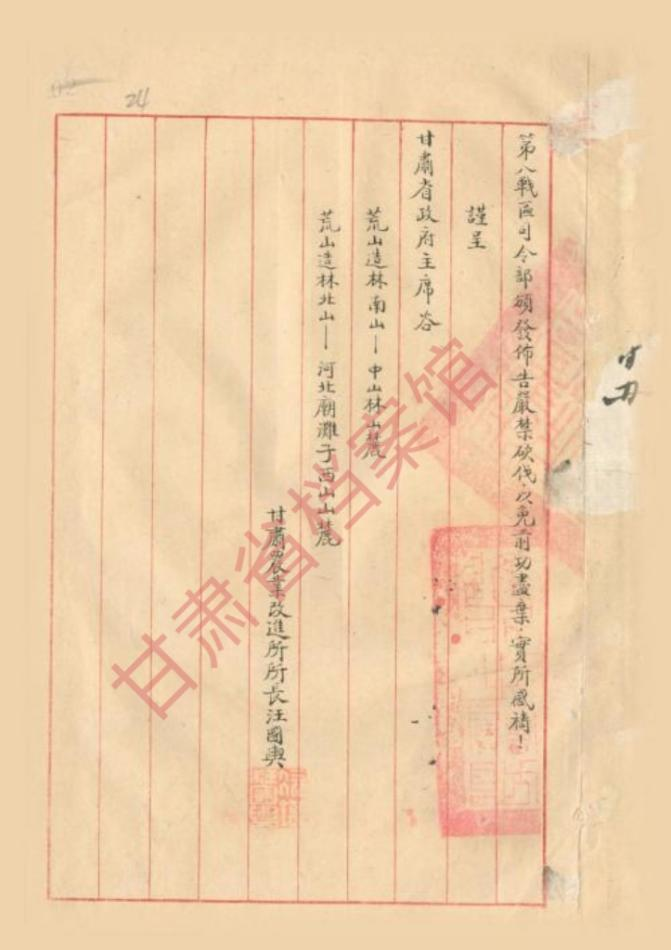 24
第八戰區司令部頒發佈告嚴禁砍伐以免前功盡棄，實所感禱！
謹呈
甘肅省政府主席谷
荒山造林南山—中山林山麓
荒山造林北山—河北廟灘子西山山麓
甘肅農業改進所所長汪國輿
甘肃省档案馆